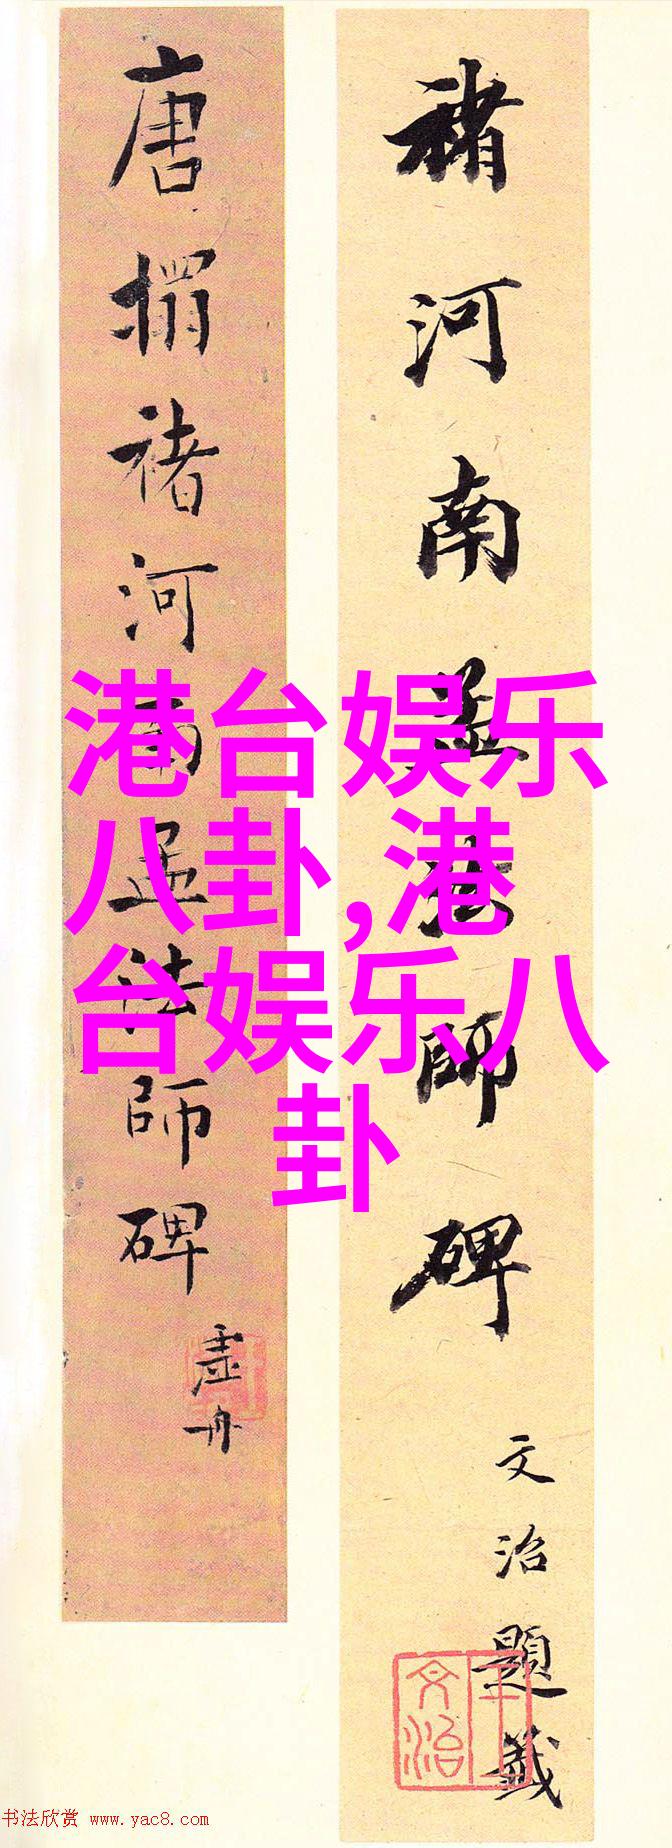 褚河南孟法師碑
文治題籤
王文治
唐搨褚河南孟法師碑
虛舟
港台娱乐
八卦,港
台娱乐八
卦
书法欣赏 www.yac8.com